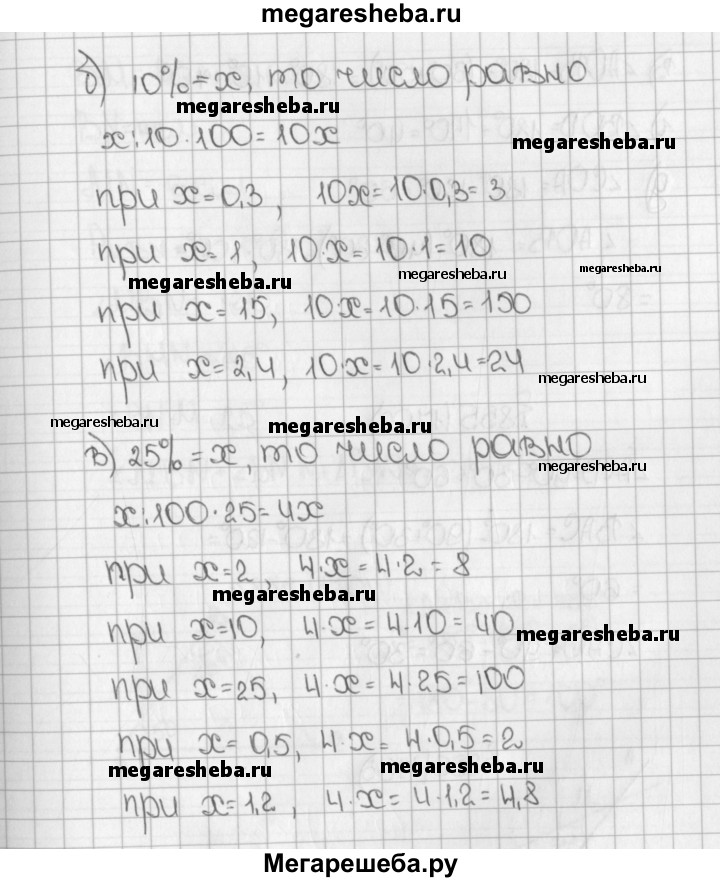 megaresheba.ru
б) 10% = x, то число равно
megaresheba.ru
x:10·100=10x
megaresheba.ru
при x=0,3, 10x=10·0,3=3
при x=1, 10·x=10·1=10
megaresheba.ru megaresheba.ru megaresheba.ru
при x=15, 10x=10·15=150
при x=2,4, 10·x=10·2,4=24
megaresheba.ru
megaresheba.ru megaresheba.ru
в) 25% = x, то число равно
megaresheba.ru
x:100·25=4x
при x=2, 4·x=4·2=8
megaresheba.ru
при x=10, 4·x=4·10=40
megaresheba.ru
при x=25, 4·x=4·25=100
при x=0,5, 4·x=4·0,5=2
megaresheba.ru megaresheba.ru
при x=1,2, 4·x=4·1,2=4,8
Мегарешеба.ру